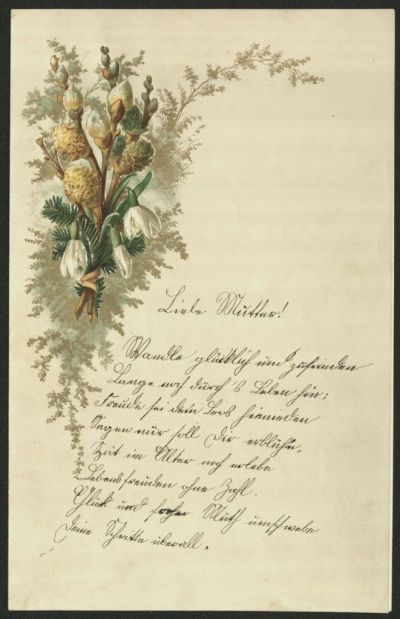 Liebe Mutter!
Wandle glücklich und zufrieden
Lange noch durch's Leben hin;
Freude sei dein Loos hienieden
Segen nur soll Dir erblühn,
Bis im Alter noch erlebe
Lebensfreuden ohne Zahl.
Glück und froher Muth umschwebe
Deine Schritte überall.